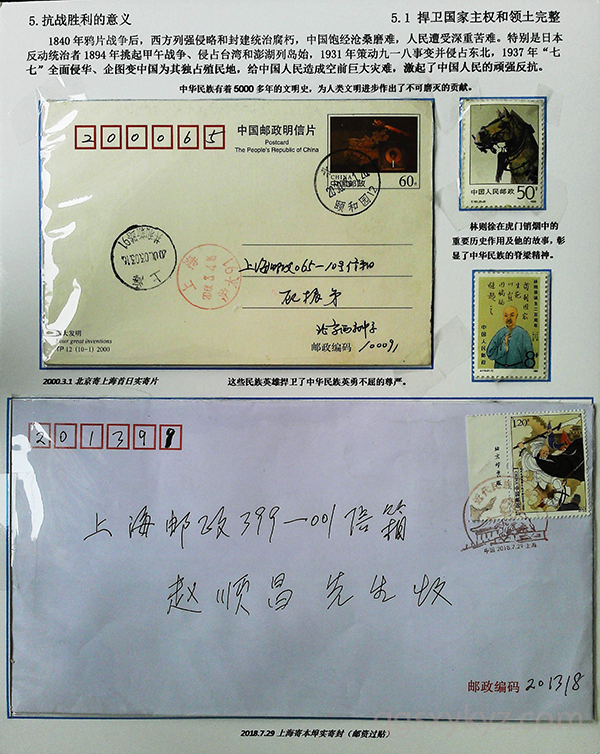 5. 抗战胜利的意义
5.1 捍卫国家主权和领土完整
1840年鸦片战争后，西方列强侵略和封建统治腐朽，中国饱经沧桑磨难，人民遭受深重苦难。特别是日本
反动统治者1894年挑起甲午战争、侵占台湾和澎湖列岛始，1931年策动九一八事变并侵占东北，1937年“七
七”全面侵华、企图变中国为其独占殖民地，给中国人民造成空前巨大灾难，激起了中国人民的顽强反抗。
中华民族有着5000多年的文明史，为人类文明进步作出了不可磨灭的贡献。
200065
中国邮政明信片
Postcard
The People's Republic of China
CHINA
中国邮政
60分
颐和园12
上海
上海邮政065-10号信箱
北京西
邮政编码 100091
four great inventions
TP·12 (10-1) 2000
中国人民邮政
50分
林则徐在虎门销烟中的
重要历史作用及他的故事，彰
显了中华民族的脊梁精神。
中国人民邮政
8分
2000.3.1 北京寄上海首日实寄片
这些民族英雄捍卫了中华民族英勇不屈的尊严。
201399
120
上海邮政399-001信箱
赵顺昌 先生收
中国 2018.7.29 上海
邮政编码 201318
2018.7.29 上海寄本埠实寄封（邮资过贴）